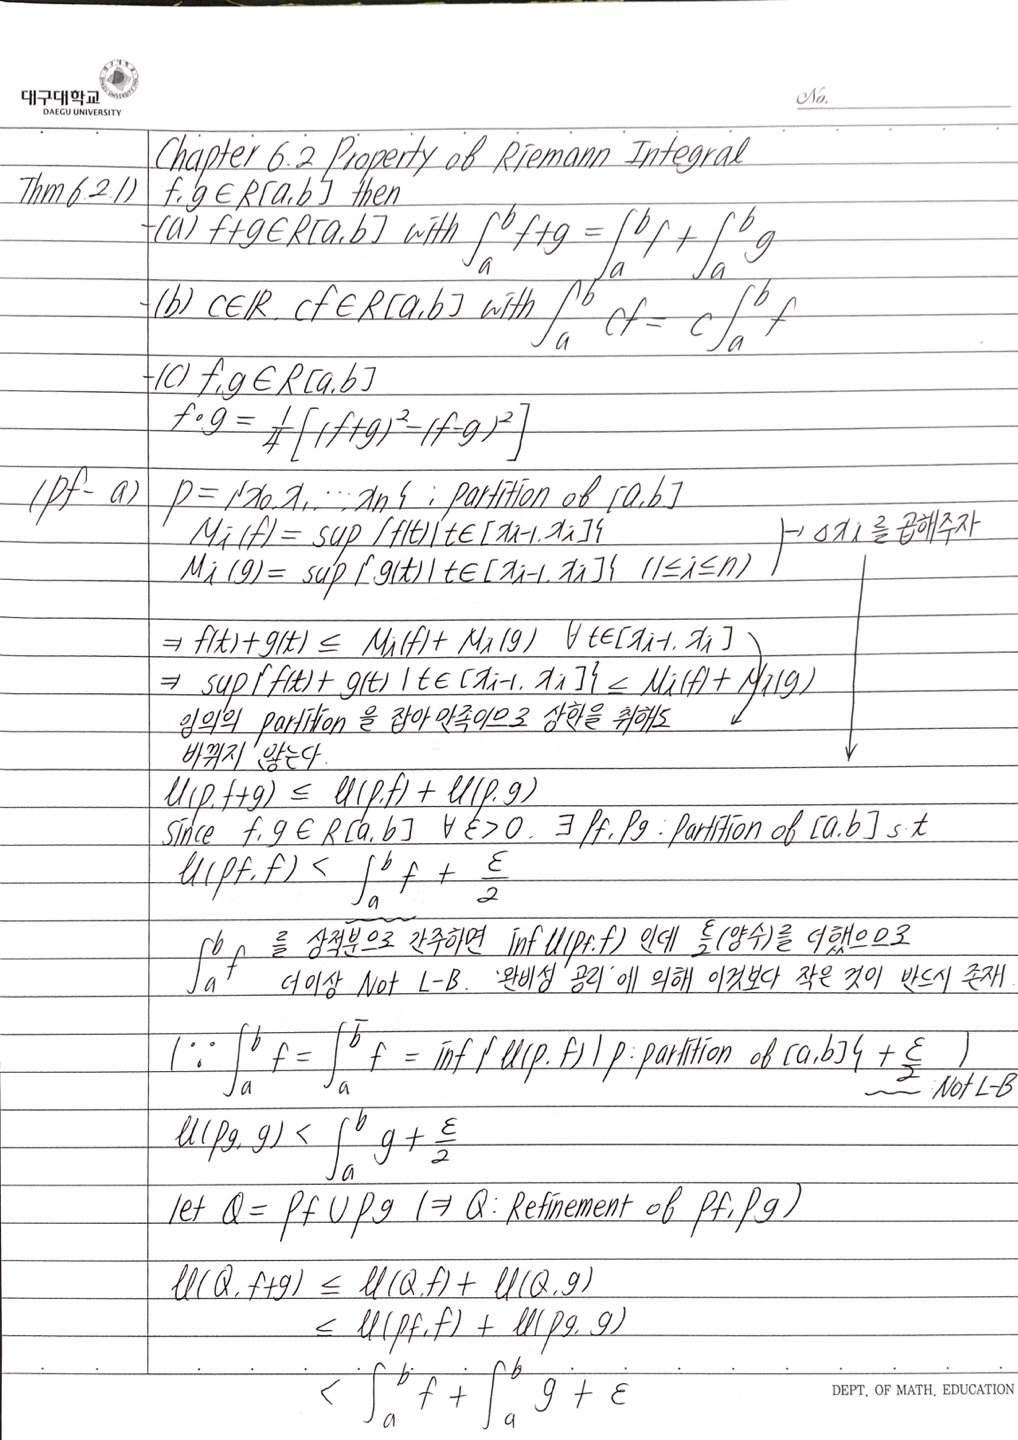 대구대학교
DAEGU UNIVERSITY
No.
Chapter 6.2 Property of Riemann Integral
Thm 6.2.1) f, g ∈ R[a,b] then
-(a) f+g ∈ R[a,b] with ∫_a^b f+g = ∫_a^b f + ∫_a^b g
-(b) c∈R. cf ∈ R[a,b] with ∫_a^b cf = c∫_a^b f
-(c) f,g ∈ R[a,b]
f∘g = 1/4 [(f+g)² - (f-g)²]
(pf- a) p = {x₀, x₁, ⋯ xn} : partition of [a,b]
Mi(f) = sup {f(t) | t∈[xi-1, xi]}
⊢ Δxi 를 곱해주자
Mi(g) = sup {g(t) | t∈[xi-1, xi]} (1≤i≤n)
⇒ f(t)+g(t) ≤ Mi(f) + Mi(g) ∀t∈[xi-1, xi]
⇒ sup{f(t) + g(t) | t∈[xi-1, xi]} ≤ Mi(f) + Mi(g)
임의의 partition 을 잡아 만족이므로 상한을 취해도
바뀌지 않는다.
U(p, f+g) ≤ U(p,f) + U(p,g)
since f, g ∈ R[a,b] ∀ε>0. ∃ pf, pg : partition of [a,b] s·t
U(pf, f) < ∫_a^b f + ε/2
∫_a^b f 를 상적분으로 간주하면 inf U(pf,f) 인데 ε/2(양수)를 더했으므로
더이상 Not L-B. '완비성 공리'에 의해 이것보다 작은 것이 반드시 존재.
(∵ ∫_a^b f = ∫_a^b̄ f = inf { U(p, f) | p: partition of [a,b]} + ε/2 )
: Not L-B
U(pg, g) < ∫_a^b g + ε/2
let Q = pf ∪ pg (⇒ Q: Refinement of pf, pg)
U(Q, f+g) ≤ U(Q,f) + U(Q,g)
≤ U(pf,f) + U(pg,g)
< ∫_a^b f + ∫_a^b g + ε
DEPT. OF MATH. EDUCATION